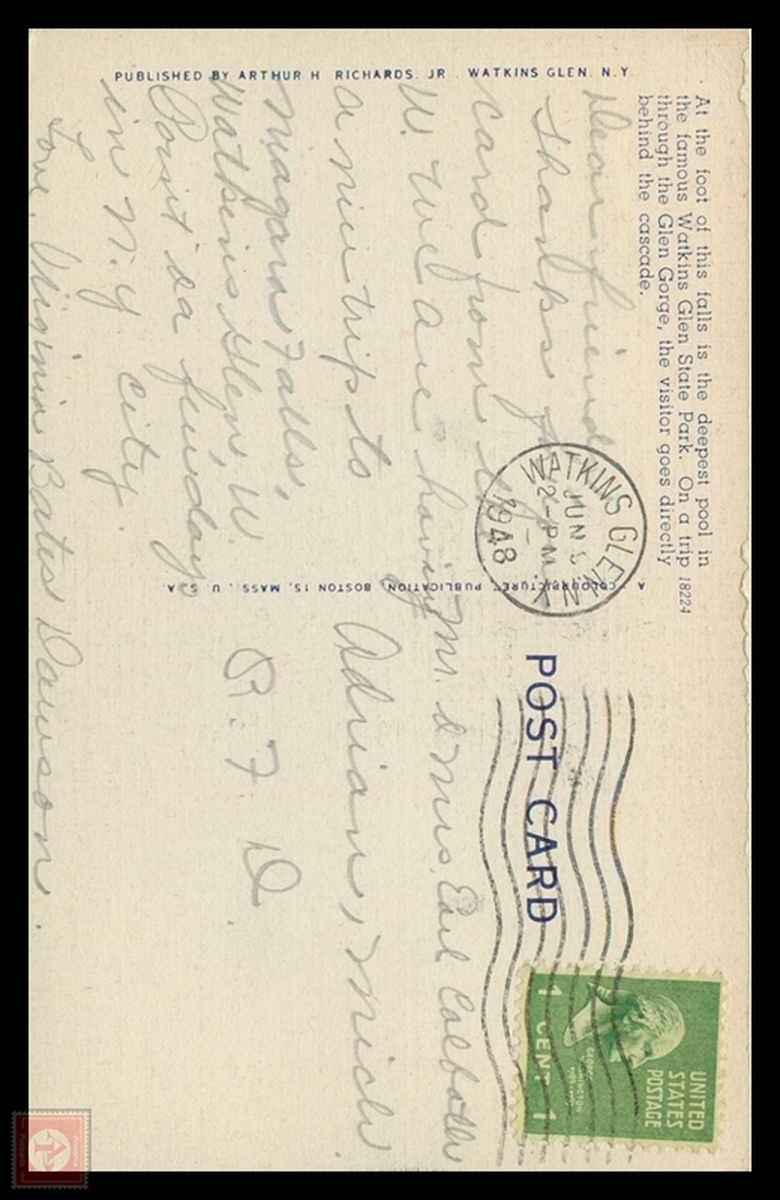 At the foot of this falls is the deepest pool in
the famous Watkins Glen State Park. On a trip
through the Glen Gorge, the visitor goes directly
behind the cascade.
18224
PUBLISHED BY ARTHUR H RICHARDS. JR. WATKINS GLEN. N.Y.
Dear friend
Thanks for
card from
W. We are having
a nice trip to
Niagara Falls,
Watkins Glen, W.
Point &a few days
in N.Y. City.
Love, Virginia Bates Dawson.
WATKINS GLEN
JUN 5
2-PM
1948
N.Y.
A "COLOURPICTURE" PUBLICATION, BOSTON 15, MASS., U.S.A.
POST CARD
UNITED
STATES
POSTAGE
1 CENT 1
Mr. & Mrs. Earl
Adrian, Mich.
R.F.D.